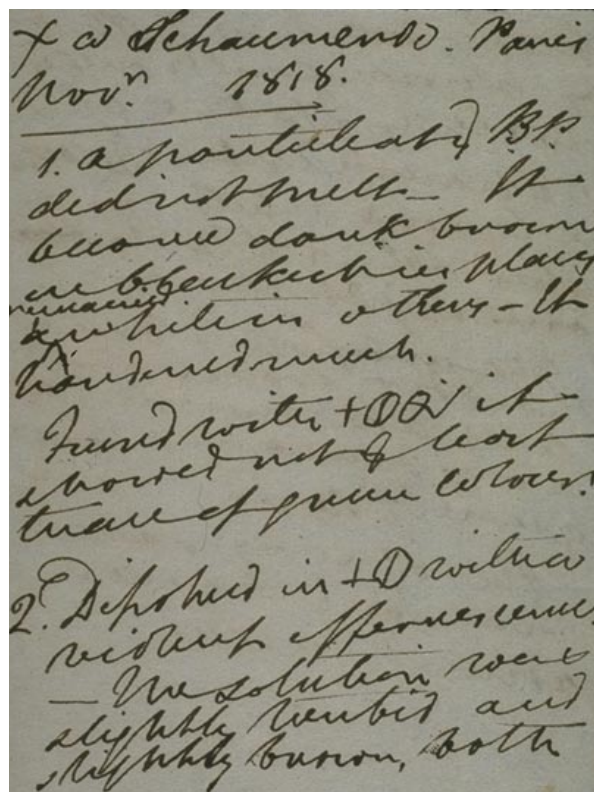 Schaumendo. Paris
Novr. 1818.
1. a particle at BP.
did not melt - It
became dark brown
or blackish in places
remained
& white in others - It
hardened much.
Fused with it
showed not least
trace of green colour.
2. Dissolved in with a
violent effervescence
- The solution was
slightly turbid and
slightly brown, both